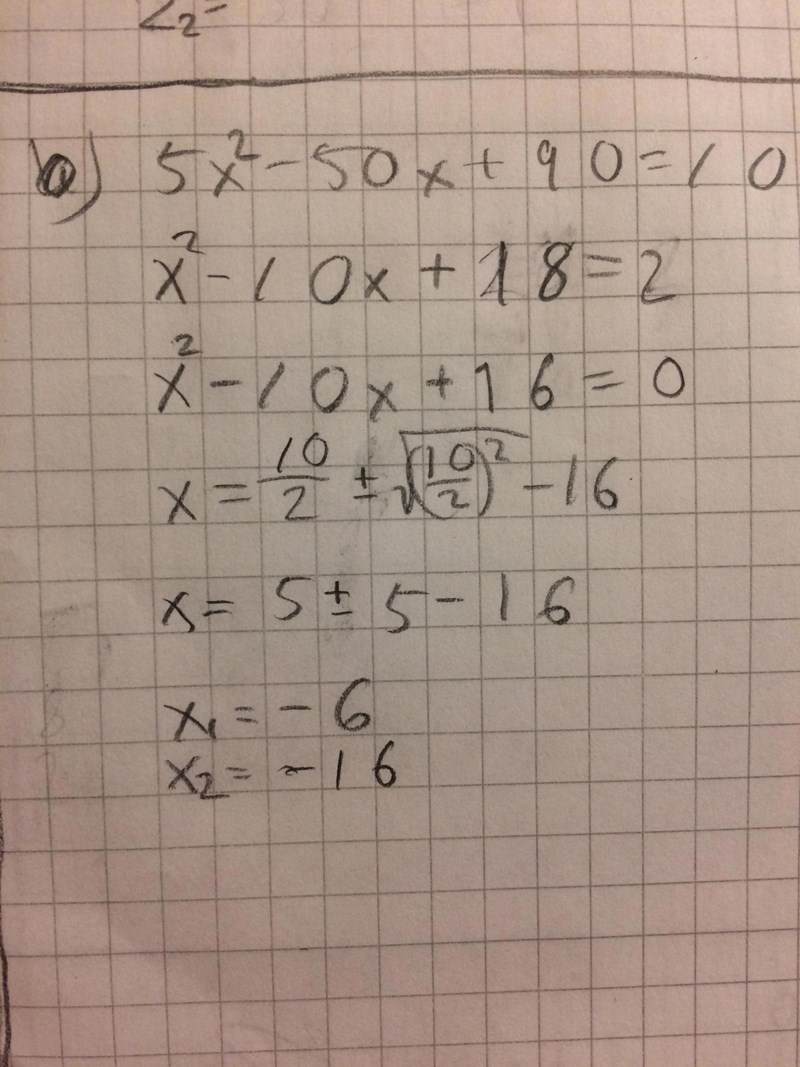 b) 5x² - 50x + 90 = 10
x² - 10x + 18 = 2
x² - 10x + 16 = 0
x = 10/2 ± √(10/2)² - 16
x = 5 ± 5 - 16
x₁ = - 6
x₂ = - 16